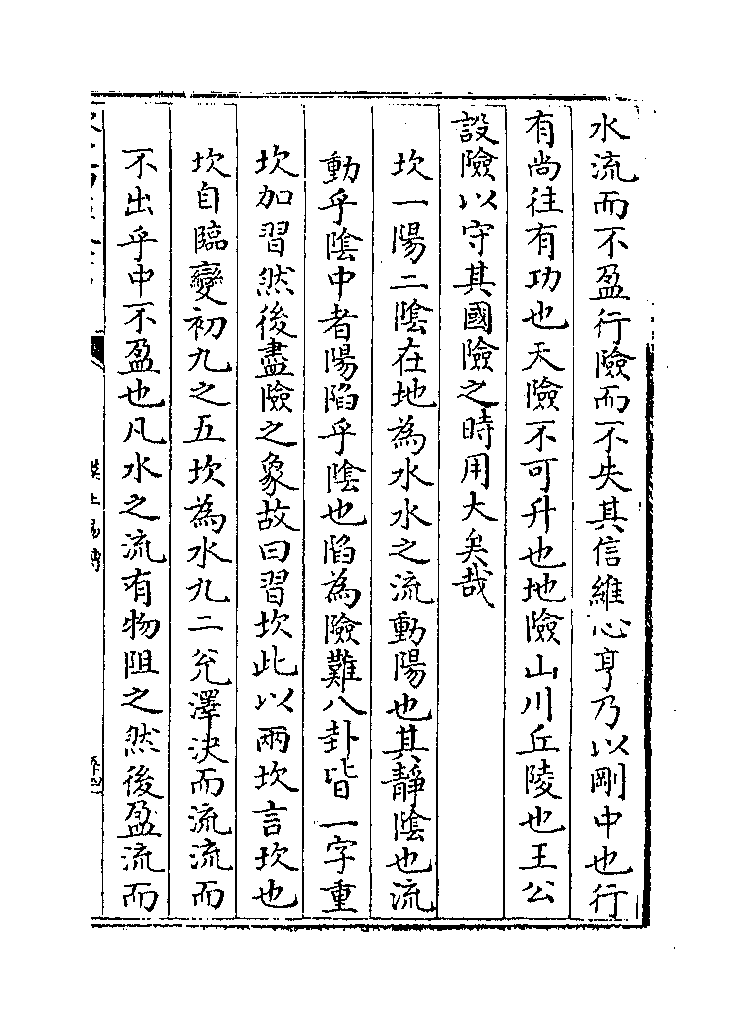 水流而不盈行險而不失其信維心亨乃以剛中也行
有尚往有功也天險不可升也地險山川丘陵也王公
設險以守其國險之時用大矣哉
坎一陽二陰在地為水水之流動陽也其靜陰也流
動乎陰中者陽陷乎陰也陷為險難八卦皆一字重
坎加習然後盡險之象故曰習坎此以兩坎言坎也
坎自臨變初九之五坎為水九二兊澤決而流流而
不出乎中不盈也凡水之流有物阻之然後盈流而
漢上易傳